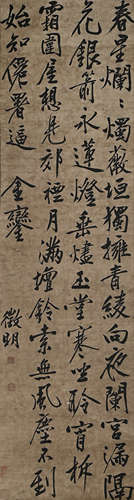 春星爛〻燭薇垣獨擁青綾向夜闌宮漏隔
花銀箭永蓮燈垂燼玉堂寒坐聆宵柝
霜圍屋想見郊禋月滿壇鈴索無風塵不到
始知僊署逼金鑾
徵明